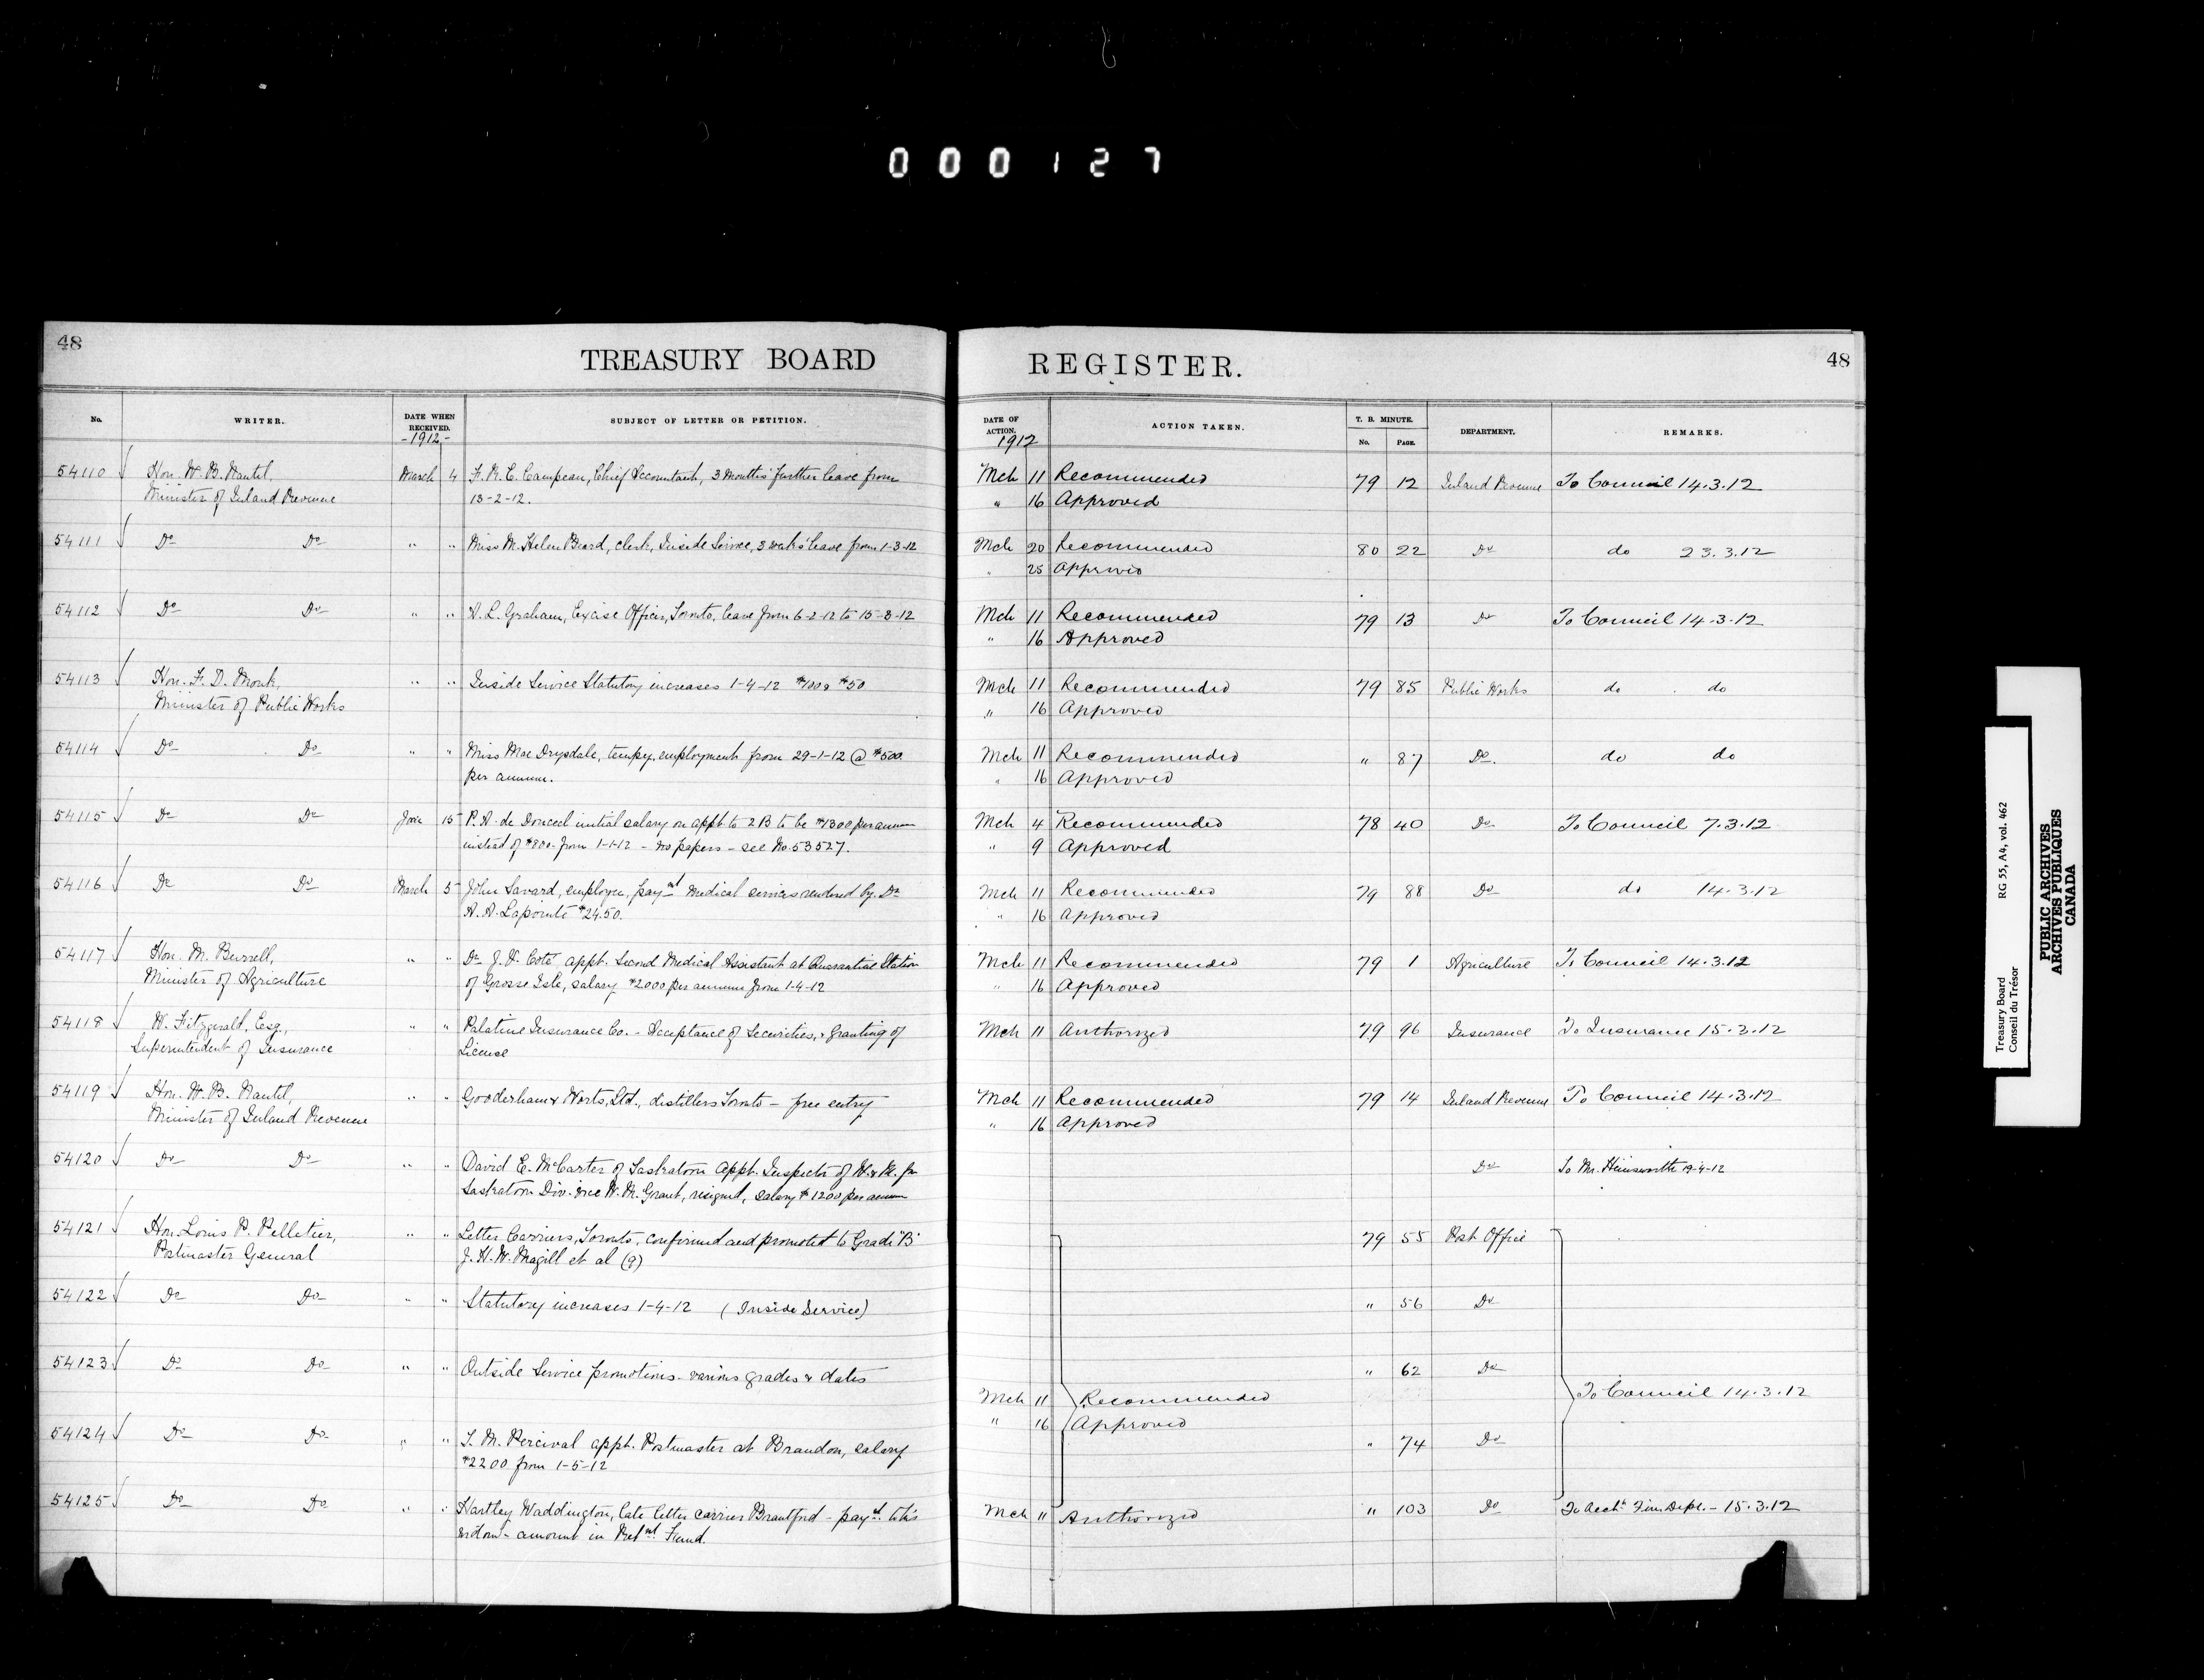 000127
48
TREASURY BOARD
REGISTER.
48
No.
WRITER.
DATE WHEN RECEIVED.
-1912,-
SUBJECT OF LETTER OR PETITION.
DATE OF ACTION.
1912
ACTION TAKEN.
T. B. MINUTE.
No.
PAGE.
DEPARTMENT.
REMARKS.
54110 Hon. W. B. Nantel, March 4 F. R. E. Campeau, Chief Accountant, 3 Months' further leave from Mch 11 Recommended 79 12 Inland Revenue To Council 14.3.12
Minister of Inland Revenue 13-2-12. " 16 Approved
54111 Do Do " " Miss M. Helen Beard, clerk, Inside Service, 3 weeks' leave from 1-3-12 Mch 20 Recommended 80 22 Do do 23.3.12
" 25 Approved
54112 Do Do " " A. L. Graham, Excise Officer, Toronto, leave from 6-2-12 to 15-3-12 Mch 11 Recommended 79 13 Do To Council 14.3.12
" 16 Approved
54113 Hon. F. D. Monk, " " Inside Service Statutory increases 1-4-12 $100 & $50 Mch 11 Recommended 79 85 Public Works do do
Minister of Public Works " 16 Approved
54114 Do Do " " Miss Mae Drysdale, tempy. employment from 29-1-12 @ $500 Mch 11 Recommended " 87 Do. do do
per annum. " 16 Approved
54115 Do Do 15 P. A. de initial salary on appt to 2 B to be $1300 per annum Mch 4 Recommended 78 40 Do To Council 7.3.12
instead of $800. from 1-1-12 - no papers - see No. 53527. " 9 Approved
54116 Do Do March 5 John Savard, employee, paymt Medical services rendered by Dr Mch 11 Recommended 79 88 Do do 14.3.12
A. A. Lapointe $24.50. " 16 Approved
54117 Hon. M. Burrell, " " Dr. J. V. Coté appt. Second Medical Assistant at Quarantine Station Mch 11 Recommended 79 1 Agriculture To Council 14.3.12
Minister of Agriculture of Grosse Isle, salary $2000 per annum from 1-4-12 " 16 Approved
54118 W. Fitzgerald, Esq., " " Palatine Insurance Co. - Acceptance of Securities, & granting of Mch 11 Authorized 79 96 Insurance To Insurance 15.3.12
Superintendent of Insurance License
54119 Hon. W. B. Nantel, " " Gooderham & Worts, Ltd., distillers Toronto - free entry Mch 11 Recommended 79 14 Inland Revenue To Council 14.3.12
Minister of Inland Revenue " 16 Approved
54120 Do Do " " David E. McCarter of Saskatoon appt. Inspector of W. & M. for Do To Mr. Heinsworth 19-4-12
Saskatoon Div. vice W. M. Grant, resigned, salary $1200 per annum
54121 Hon. Louis P. Pelletier, " " Letter Carriers, Toronto, confirmed and promoted to Grade "B" 79 55 Post Office
Postmaster General J. H. W. Magill et al (9)
54122 Do Do " " Statutory increases 1-4-12 (Inside Service) " 56 Do
54123 Do Do " " Outside Service promotions - various grades & dates " 62 Do
Mch 11 Recommended To Council 14.3.12
" 16 Approved
54124 Do Do " " Percival appt. Postmaster at Brandon, salary " 74 Do
$2200 from 1-5-12
54125 Do Do " " Hartley Waddington, late letter carrier Brantford - paymt to his Mch 11 Authorized " 103 Do To Acct. Fin. Dept. - 15.3.12
widow - amount in Retmt. Fund.
Treasury Board RG 55, A4, vol. 462
Conseil du Trésor
PUBLIC ARCHIVES
ARCHIVES PUBLIQUES
CANADA